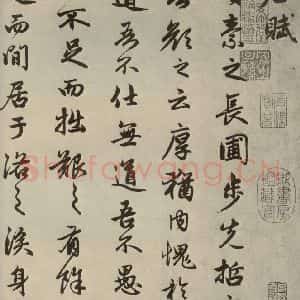 賦
素之長圃步先哲
顏之云厚猶內愧於
道吾不仕無道吾不愚
不足而拙艱之有餘
而閒居于洛之涘身
Shufawang.CN